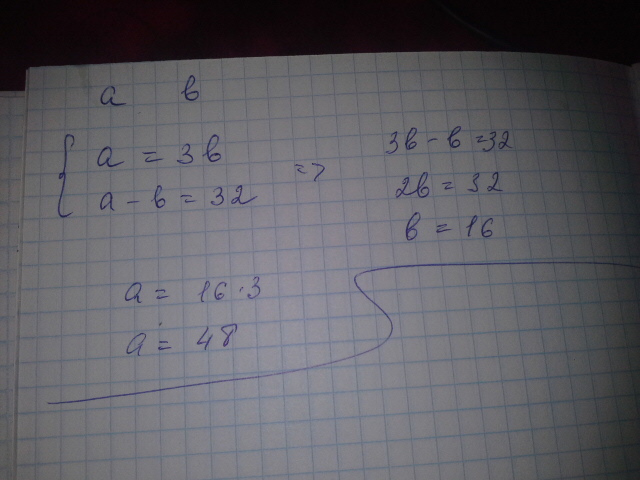 a в
a = 3в
a - в = 32
=>
3в - в = 32
2в = 32
в = 16
a = 16·3
a = 48